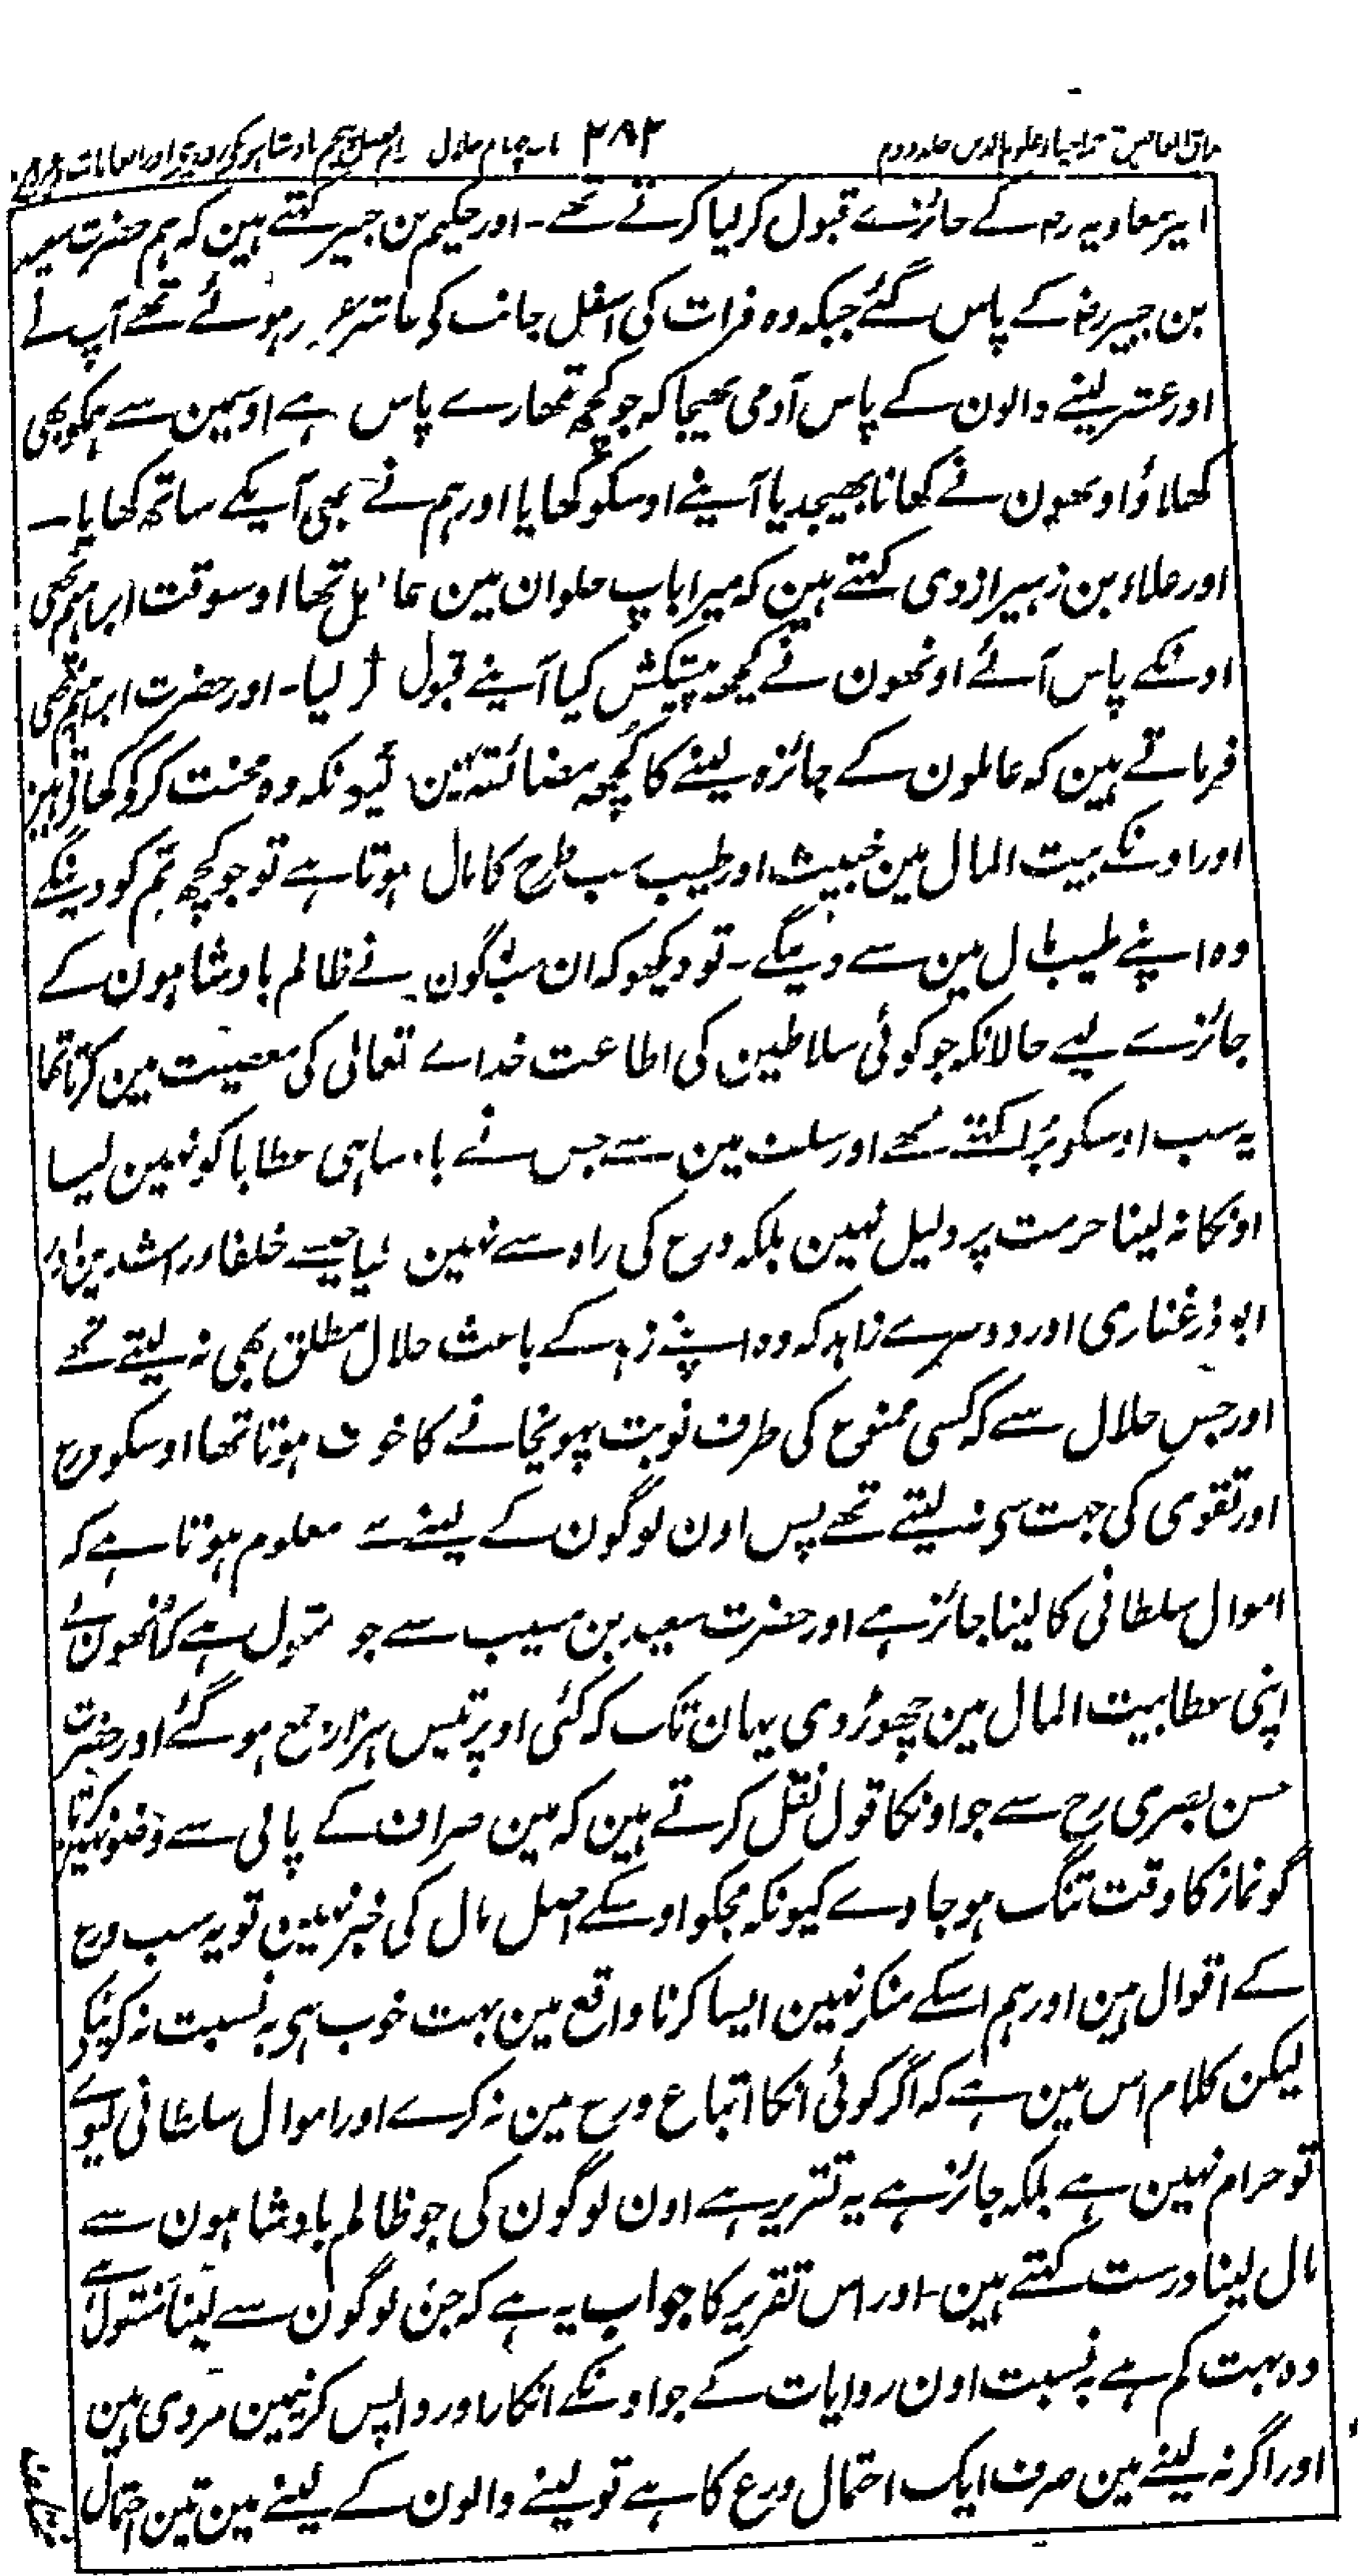 مذاق العارفین ترجمہ احیاء علوم الدین جلد دوم ۲۸۲ باب چہارم حلال
امیر معاویہ رض کے جائزے قبول کر لیا کرتے تھے ۔ اور حکیم بن جبیر کہتے ہین کہ ہم حضرت سعید
بن جبیر رض کے پاس گئے جبکہ وہ فرات کی اسفل جانب کی عاشر ہوئے تھے آپ نے
اور عشر لینے والون کے پاس آدمی بھیجا کہ جو کچھ تمھارے پاس ہے اوسمین سے ہمکو بھی
کھلاؤ اونھون نے کھانا بھیجدیا آپنے اوسکو کھایا اور ہم نے بھی آپکے ساتھ کھایا ۔
اور علاء بن زہیر ازدی کہتے ہین کہ میرا باپ حلوان مین عامل تھا اوسوقت ابراہیم نخعی
اونکے پاس آئے اونھون نے کچھ پیشکش کیا آپنے قبول کر لیا ۔ اور حضرت ابراہیم نخعی
فرماتے ہین کہ عاملون کے جائزہ لینے کا کچھ مضائقہ نہین کیونکہ وہ محنت کر کر کھاتے ہین
اور اونکے بیت المال مین خبیث اور طیب سب طرح کا مال ہوتا ہے تو جو کچھ تم کو دینگے
وہ اپنے طیب مال مین سے دینگے ۔ تو دیکھو کہ ان بزرگون نے ظالم بادشاہون کے
جائزے لیے حالانکہ جو کوئی سلاطین کی اطاعت خداے تعالی کی معصیت مین کرتا تھا
یہ سب اوسکو برا کہتے تھے اور سلف مین سے جس نے بادشاہی عطایا کو نہین لیا
اونکا نہ لینا حرمت پر دلیل نہین بلکہ ورع کی راہ سے نہین لیا جیسے خلفاء راشدین اور
ابوذر غفاری اور دوسرے زاہد کہ وہ اپنے زہد کے باعث حلال مطلق بھی نہ لیتے تھے
اور جس حلال سے کہ کسی ممنوع کی طرف نوبت پہونچانے کا خوف ہوتا تھا اوسکو ورع
اور تقوی کی جہت سی نہ لیتے تھے پس اون لوگون کے لینے سے معلوم ہوتا ہے کہ
اموال سلطانی کا لینا جائز ہے اور حضرت سعید بن مسیب سے جو منقول ہے کہ انھون نے
اپنی عطا بیت المال مین چھوڑ دی یہان تک کہ کئی اوپر تیس ہزار جمع ہو گئے اور حضرت
حسن بصری رح سے جو اونکا قول نقل کرتے ہین کہ مین صراف کے پانی سے وضو نہین کرتا
گو نماز کا وقت تنگ ہو جاوے کیونکہ مجکو اوسکے اصل مال کی خبر نہین تو یہ سب ورع
کے اقوال ہین اور ہم اسکے منکر نہین ایسا کرنا واقع مین بہت خوب ہی بہ نسبت نہ کرنیکے
لیکن کلام اس مین ہے کہ اگر کوئی انکا اتباع ورع مین نہ کرے اور اموال سلطانی لیوے
تو حرام نہین ہے بلکہ جائز ہے یہ تقریر ہے اون لوگون کی جو ظالم بادشاہون سے
مال لینا درست کہتے ہین ۔ اور اس تقریر کا جواب یہ ہے کہ جن لوگون سے لینا منقول ہے
وہ بہت کم ہے بہ نسبت اون روایات کے جو اونکے انکار اور واپس کرنیمین مروی ہین
اور اگر نہ لینے مین صرف ایک احتمال ورع کا ہے تو لینے والون کے لینے مین تین احتمال